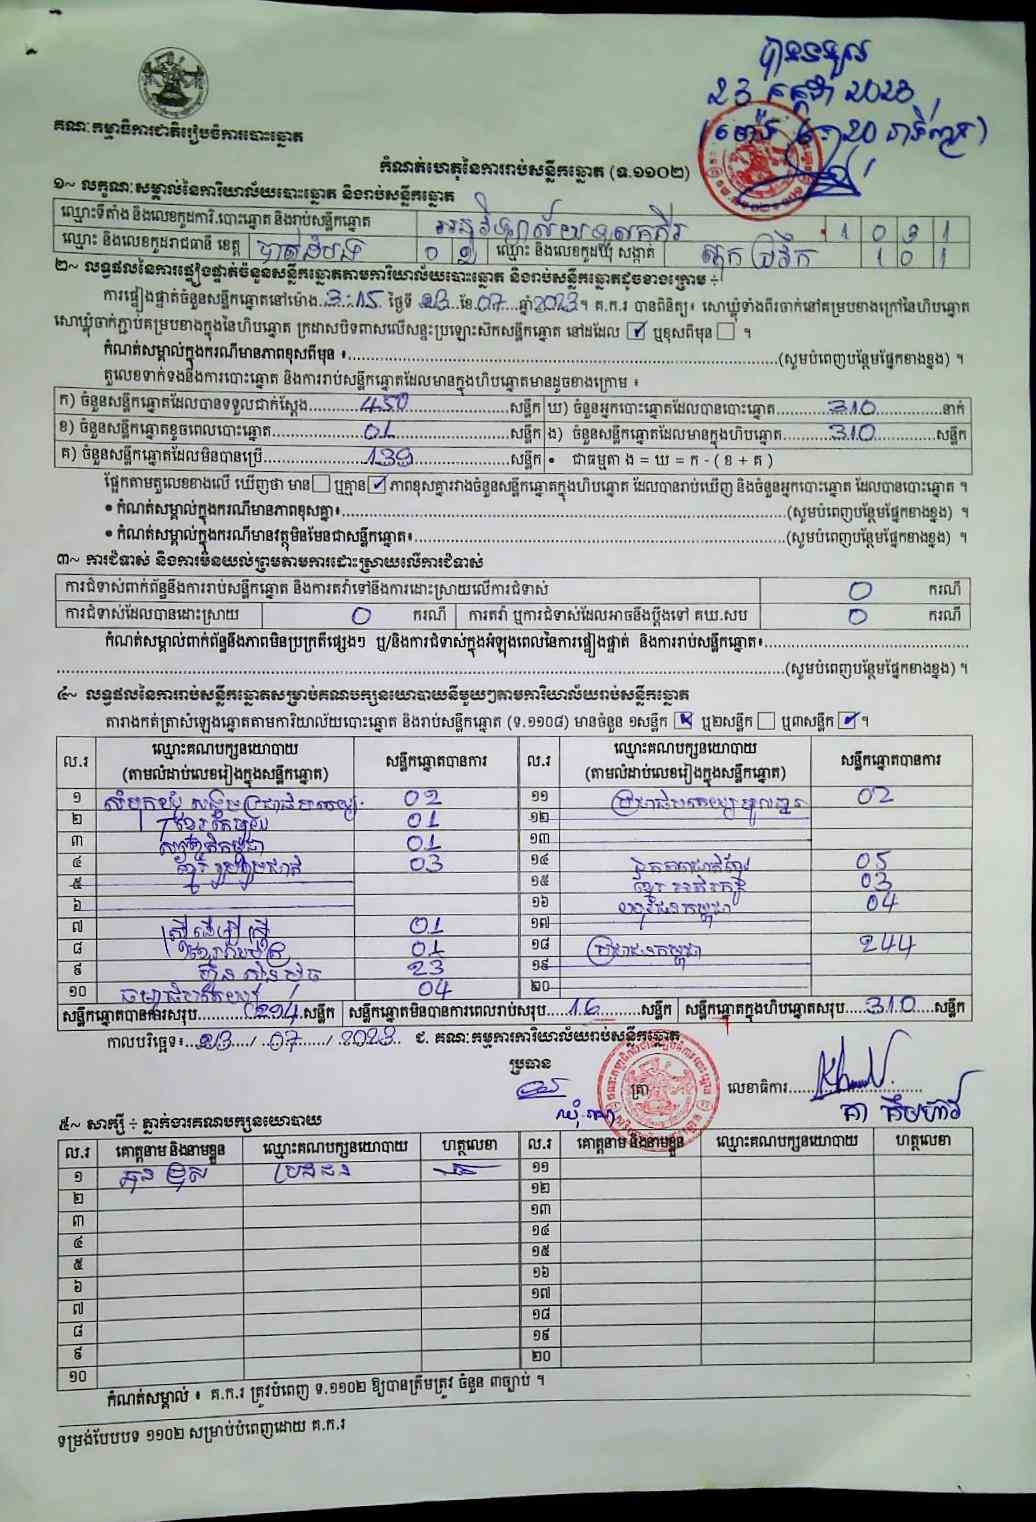 បានទទួល
23 កក្កដា 2023
គណៈកម្មាធិការជាតិរៀបចំការបោះឆ្នោត
កំណត់ហេតុនៃការរាប់សន្លឹកឆ្នោត (ទ.១១០២)
១~ លក្ខណៈសម្គាល់នៃការិយាល័យបោះឆ្នោត និងរាប់សន្លឹកឆ្នោត
ឈ្មោះទីតាំង និងលេខកូដការិ.បោះឆ្នោត និងរាប់សន្លឹកឆ្នោត
ឈ្មោះ និងលេខកូដរាជធានី ខេត្ត បាត់ដំបង 0 2 ឈ្មោះ និងលេខកូដឃុំ សង្កាត់ 1 0 1
២~ លទ្ធផលនៃការផ្ទៀងផ្ទាត់ចំនួនសន្លឹកឆ្នោតតាមការិយាល័យបោះឆ្នោត និងរាប់សន្លឹកឆ្នោតដូចខាងក្រោម ÷
ការផ្ទៀងផ្ទាត់ចំនួនសន្លឹកឆ្នោតនៅម៉ោង 3:15 ថ្ងៃទី 23 ខែ 07 ឆ្នាំ 2023។ គ.ក.រ បានពិនិត្យ៖ សោឃ្លុំទាំងពីរចាក់នៅគម្របខាងក្រៅនៃហិបឆ្នោត
សោឃ្លុំចាក់ភ្ជាប់គម្របខាងក្នុងនៃហិបឆ្នោត ក្រដាសបិទពាសលើសន្ទះប្រឡោះសឹកសន្លឹកឆ្នោត នៅដដែល ☑ ឬខុសពីមុន ☐ ។
កំណត់សម្គាល់ក្នុងករណីមានភាពខុសពីមុន ៖ (សូមបំពេញបន្ថែមផ្នែកខាងខ្នង) ។
តួលេខទាក់ទងនឹងការបោះឆ្នោត និងការរាប់សន្លឹកឆ្នោតដែលមានក្នុងហិបឆ្នោតមានដូចខាងក្រោម ៖
ក) ចំនួនសន្លឹកឆ្នោតដែលបានទទួលជាក់ស្ដែង 450 សន្លឹក ឃ) ចំនួនអ្នកបោះឆ្នោតដែលបានបោះឆ្នោត 310 នាក់
ខ) ចំនួនសន្លឹកឆ្នោតខូចពេលបោះឆ្នោត 01 សន្លឹក ង) ចំនួនសន្លឹកឆ្នោតដែលមានក្នុងហិបឆ្នោត 310 សន្លឹក
គ) ចំនួនសន្លឹកឆ្នោតដែលមិនបានប្រើ 139 សន្លឹក • ជាធម្មតា ង = ឃ = ក - ( ខ + គ )
ផ្អែកតាមតួលេខខាងលើ ឃើញថា មាន ☐ ឬគ្មាន ☑ ភាពខុសគ្នារវាងចំនួនសន្លឹកឆ្នោតក្នុងហិបឆ្នោត ដែលបានរាប់ឃើញ និងចំនួនអ្នកបោះឆ្នោត ដែលបានបោះឆ្នោត ។
• កំណត់សម្គាល់ក្នុងករណីមានភាពខុសគ្នា៖ (សូមបំពេញបន្ថែមផ្នែកខាងខ្នង) ។
• កំណត់សម្គាល់ក្នុងករណីមានវត្ថុមិនមែនជាសន្លឹកឆ្នោត៖ (សូមបំពេញបន្ថែមផ្នែកខាងខ្នង) ។
៣~ ការជំទាស់ និងការមិនយល់ព្រមតាមការដោះស្រាយលើការជំទាស់
ការជំទាស់ពាក់ព័ន្ធនឹងការរាប់សន្លឹកឆ្នោត និងការតវ៉ាទៅនឹងការដោះស្រាយលើការជំទាស់ 0 ករណី
ការជំទាស់ដែលបានដោះស្រាយ 0 ករណី ការតវ៉ា ឬការជំទាស់ដែលអាចនឹងប្ដឹងទៅ គឃ.សប 0 ករណី
កំណត់សម្គាល់ពាក់ព័ន្ធនឹងភាពមិនប្រក្រតីផ្សេងៗ ឬ/និងការជំទាស់ក្នុងអំឡុងពេលនៃការផ្ទៀងផ្ទាត់ និងការរាប់សន្លឹកឆ្នោត៖
(សូមបំពេញបន្ថែមផ្នែកខាងខ្នង) ។
៤~ លទ្ធផលនៃការរាប់សន្លឹកឆ្នោតសម្រាប់គណបក្សនយោបាយនីមួយៗតាមការិយាល័យរាប់សន្លឹកឆ្នោត
តារាងកត់ត្រាសំឡេងឆ្នោតតាមការិយាល័យបោះឆ្នោត និងរាប់សន្លឹកឆ្នោត (ទ.១១០៨) មានចំនួន ១សន្លឹក ឬ២សន្លឹក ☐ ឬ៣សន្លឹក ☑ ។
ល.រ ឈ្មោះគណបក្សនយោបាយ (តាមលំដាប់លេខរៀងក្នុងសន្លឹកឆ្នោត) សន្លឹកឆ្នោតបានការ ល.រ ឈ្មោះគណបក្សនយោបាយ (តាមលំដាប់លេខរៀងក្នុងសន្លឹកឆ្នោត) សន្លឹកឆ្នោតបានការ
១ 02 ១១ 02
២ 01 ១២
៣ 01 ១៣
៤ 03 ១៤ 05
៥ ១៥ 03
៦ ១៦ 04
៧ ស្រី ដើម្បី ស្រី 01 ១៧
៨ 01 ១៨ ប្រជាជនកម្ពុជា 244
៩ ហ្វ៊ុនស៊ិនប៉ិច 23 ១៩
១០ 04 ២០
សន្លឹកឆ្នោតបានការសរុប 294 សន្លឹក សន្លឹកឆ្នោតមិនបានការពេលរាប់សរុប 16 សន្លឹក សន្លឹកឆ្នោតក្នុងហិបឆ្នោតសរុប 310 សន្លឹក
កាលបរិច្ឆេទ៖ 23 / 07 / 2023 ជ. គណៈកម្មការការិយាល័យរាប់សន្លឹកឆ្នោត
ប្រធាន
ត្រា លេខាធិការ
៥~ សាក្សី ÷ ភ្នាក់ងារគណបក្សនយោបាយ
ល.រ គោត្តនាម និងនាមខ្លួន ឈ្មោះគណបក្សនយោបាយ ហត្ថលេខា ល.រ គោត្តនាម និងនាមខ្លួន ឈ្មោះគណបក្សនយោបាយ ហត្ថលេខា
១ ១១
២ ១២
៣ ១៣
៤ ១៤
៥ ១៥
៦ ១៦
៧ ១៧
៨ ១៨
៩ ១៩
១០ ២០
កំណត់សម្គាល់ ៖ គ.ក.រ ត្រូវបំពេញ ទ.១១០២ ឱ្យបានត្រឹមត្រូវ ចំនួន ៣ច្បាប់ ។
ទម្រង់បែបបទ ១១០២ សម្រាប់បំពេញដោយ គ.ក.រ